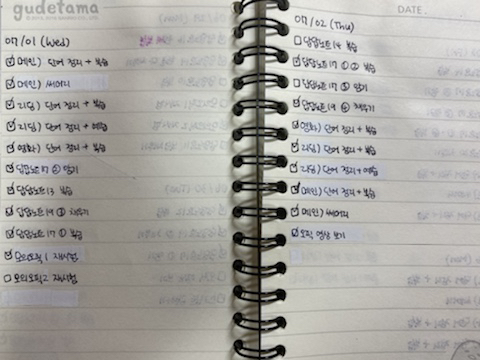 gudetama
07/01 (Wed)
☑ 메인) 단어 정리 + 복습
☑ 메인) 쎄미리
☑ 리딩) 단어 정리 + 복습
☑ 리딩) 단어 정리 + 예습
☑ 영화) 단어 정리 + 복습
☑ 답답노트 17 ② 암기
☑ 답답노트 13 복습
☑ 답답노트 19 ③ 채우기
☑ 답답노트 17 ① 복습
☑ 모의오픽 1 재시험
☐ 모의오픽 2 재시험
DATE.
07/02 (Thu)
☐ 답답노트 14 복습
☑ 답답노트 17 ① ② 복습
☐ 답답노트 17 ③ 암기
☑ 답답노트 19 ④ 채우기
☑ 영화) 단어 정리 + 복습
☑ 리딩) 단어 정리 + 복습
☑ 리딩) 단어 정리 + 예습
☑ 메인) 단어 정리 + 복습
☑ 메인) 쎄미리
☑ 오픽 영상 보기